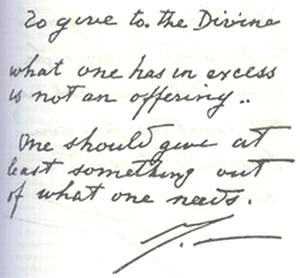 To give to the Divine
what one has in excess
is not an offering..
One should give at
least something out
of what one needs.